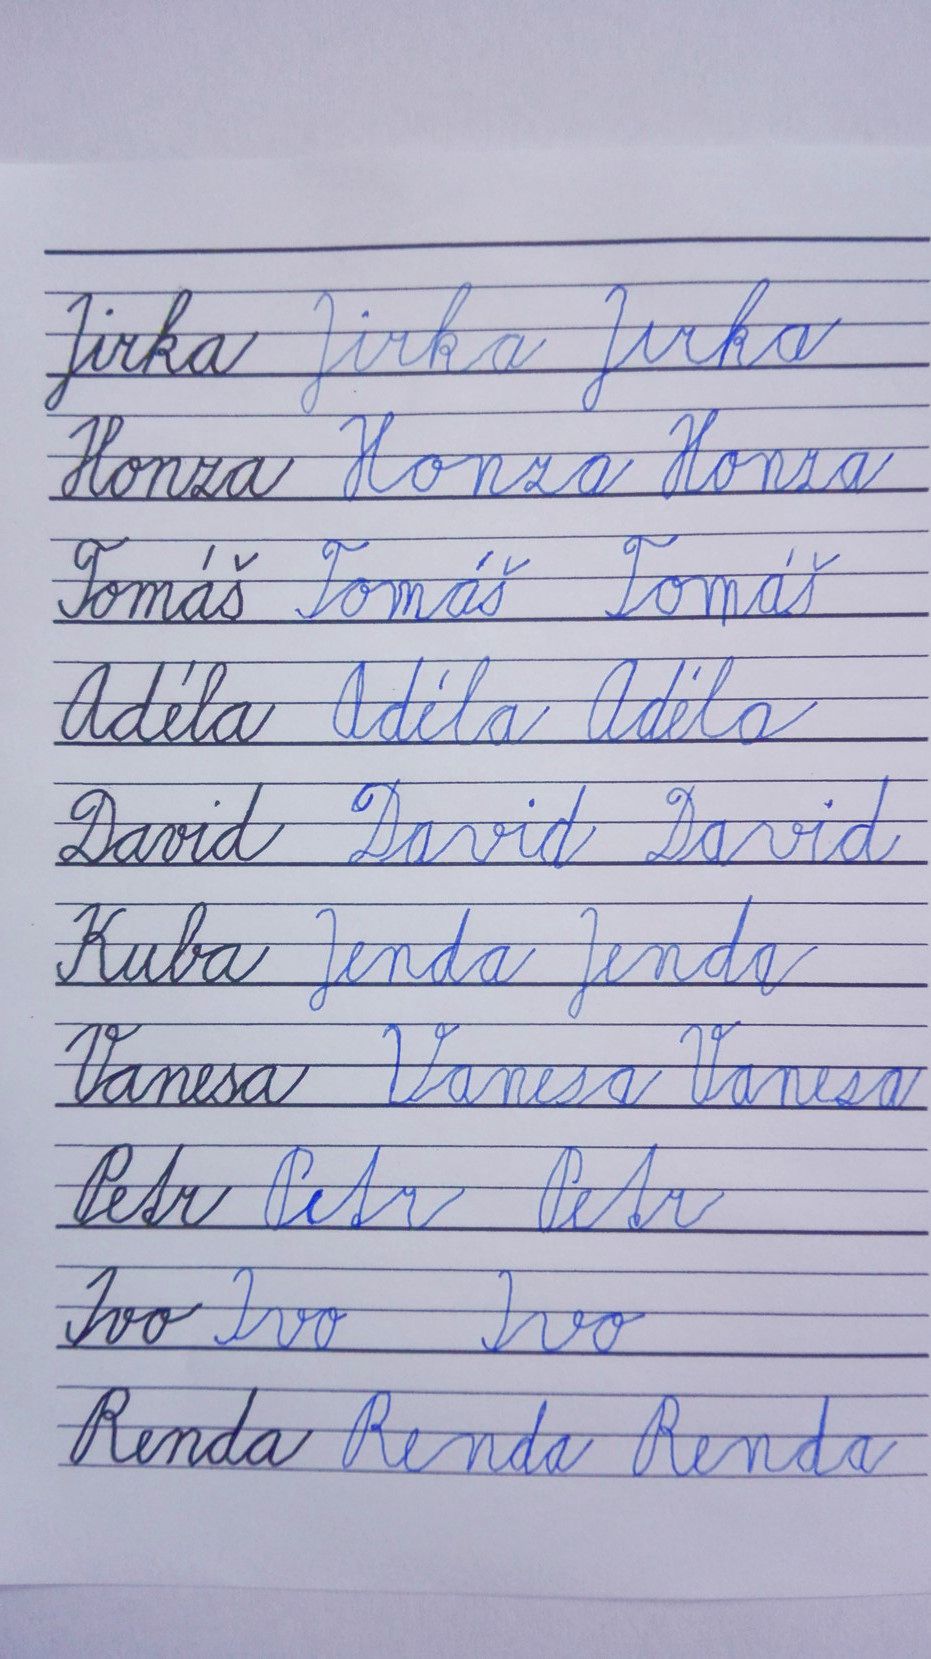 Jirka Jirka Jirka
Honza Honza Honza
Tomáš Tomáš Tomáš
Adéla Adéla Adéla
David David David
Kuba Jenda Jenda
Vanesa Vanesa Vanesa
Petr Petr Petr
Ivo Ivo Ivo
Renda Renda Renda